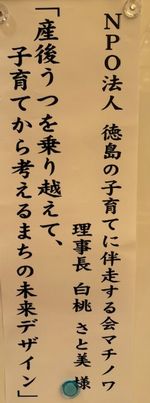 NPO法人 徳島の子育てに伴走する会マチノワ
理事長 白桃 さと美 様
「産後うつを乗り越えて、
子育てから考えるまちの未来デザイン」